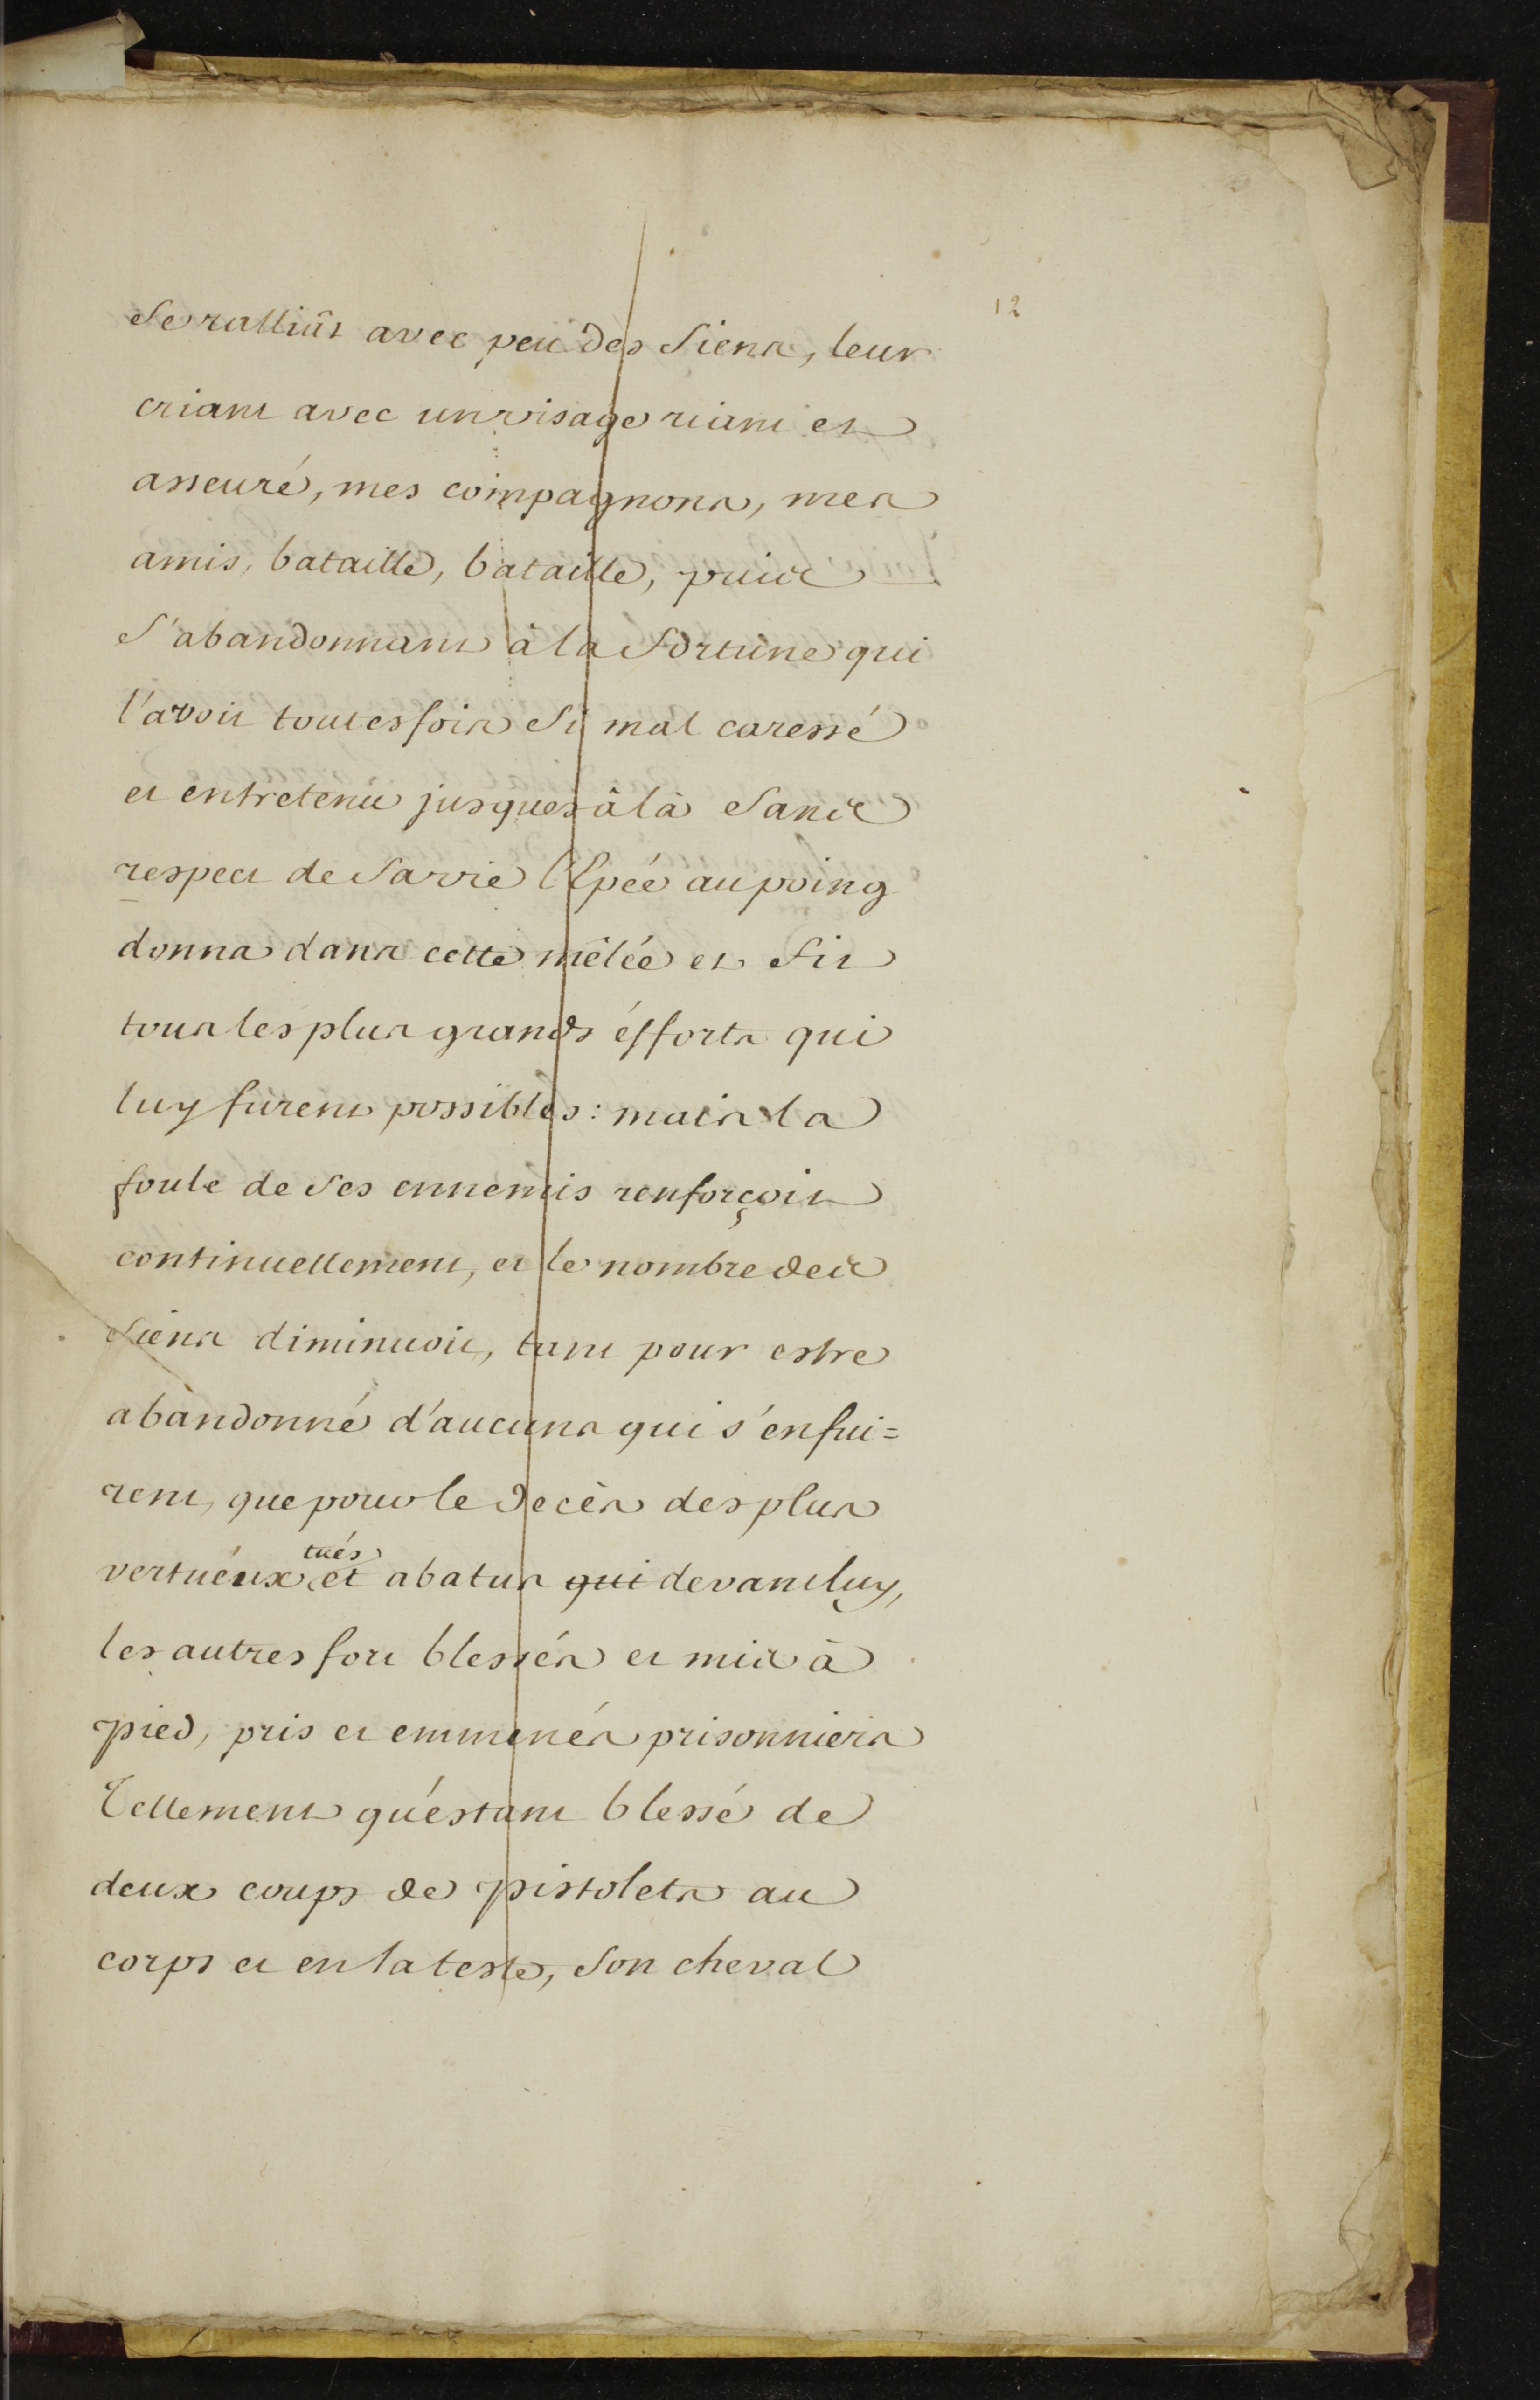 12
Se ralliât avec peu des Siens, leur
criant avec un visage riant et
asseuré, mes compagnons, mes
amis, bataille, bataille, puis
S'abandonnant à la Fortune qui
l'avoit toutesfois Si mal caressé
et entretenu jusques à là Sans
respect de Sa vie l'Epée au poing
donna dans cette mêlée et Fit
tous les plus grands éfforts qui
luy furent possibles : mais la
foule de Ses ennemis renforçoit
continuellement, et le nombre des
Siens diminuoit, tant pour estre
abandonné d'aucuns qui s'enfui=
rent, que pour le decès des plus
vertuéux tués et abatus qui devant luy,
les autres fort blessés et mis à
pied, pris et emmenés prisonniers
Tellement qu'éstant blessé de
deux coups de pistolets au
corps et en la teste, Son cheval